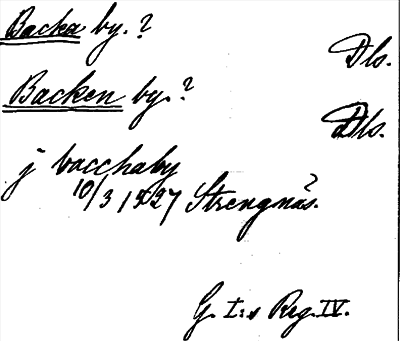 Backa by.?
Dls.
Backen by.?
Dls.
j bacchaby
10/3 1527 Strengnäs.
G. I:s Reg. IV.